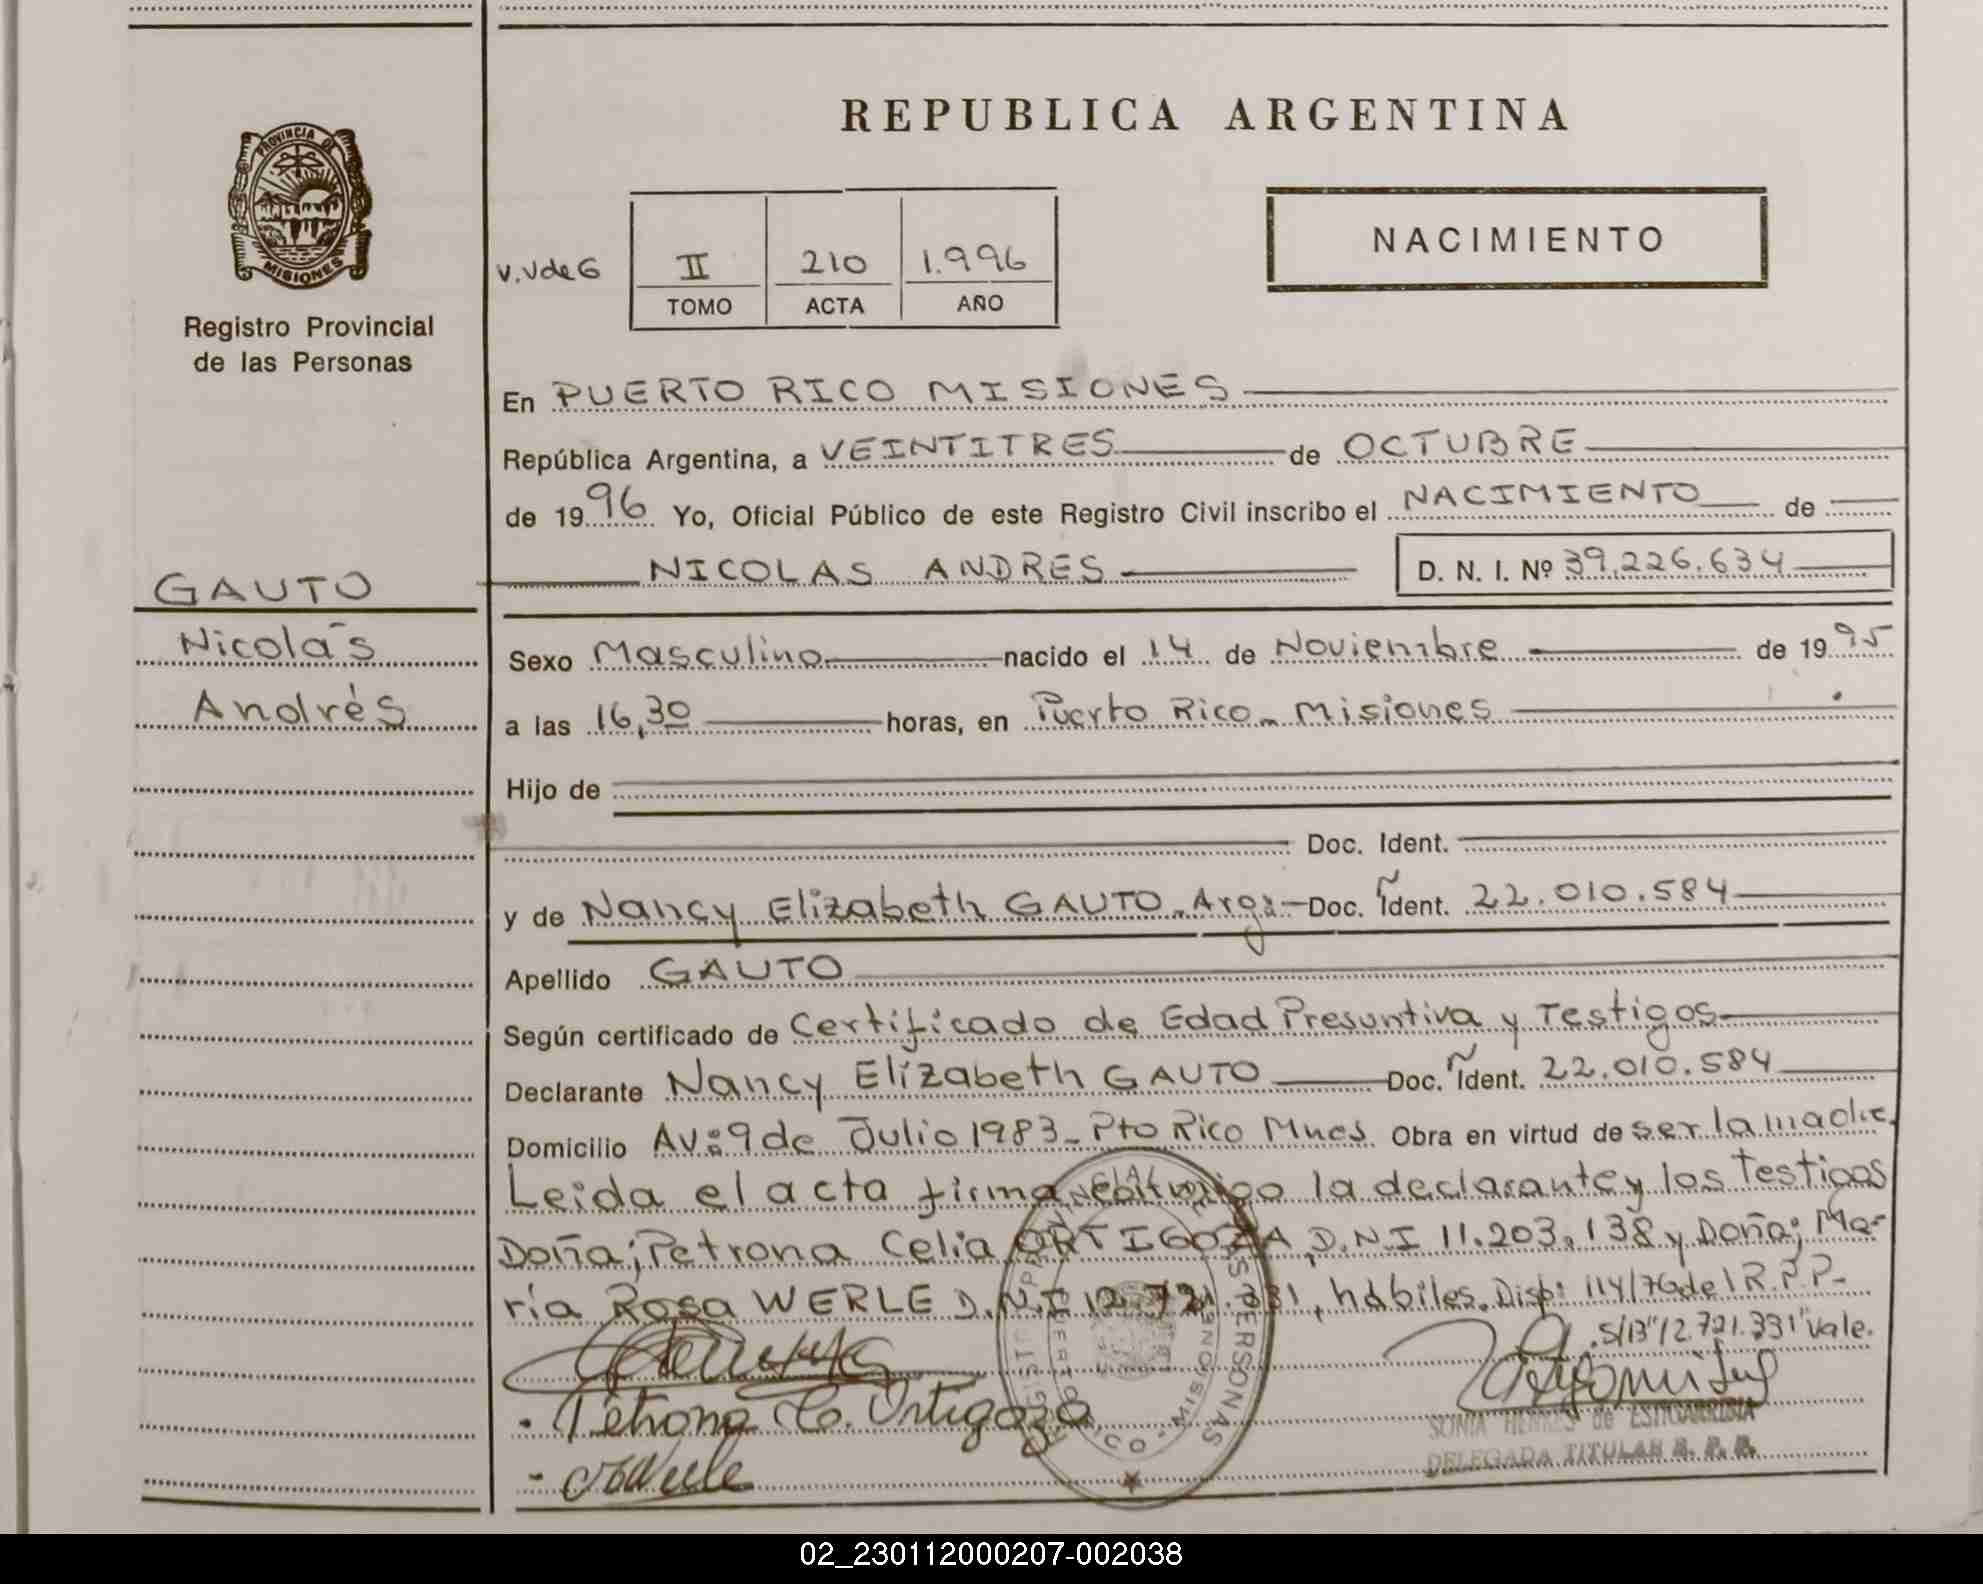 PROVINCIA DE
MISIONES
Registro Provincial
de las Personas
REPUBLICA ARGENTINA
NACIMIENTO
v.vdeG
II 210 1.996
TOMO ACTA AÑO
En PUERTO RICO MISIONES
República Argentina, a VEINTITRES de OCTUBRE
de 1996 Yo, Oficial Público de este Registro Civil inscribo el NACIMIENTO de
NICOLAS ANDRES D. N. I. Nº 39.226.634
GAUTO
Nicolás
Andrés
Sexo Masculino nacido el 14 de Noviembre de 1995
a las 16,30 horas, en Puerto Rico - Misiones
Hijo de
Doc. Ident.
y de Nancy Elizabeth GAUTO - Arg: Doc. Ident. 22.010.584
Apellido GAUTO
Según certificado de Certificado de Edad Presuntiva y Testigos
Declarante Nancy Elizabeth GAUTO Doc. Ident. 22.010.584
Domicilio Av: 9 de Julio 1983 - Pto Rico Mnes. Obra en virtud de ser la madre.
Leida el acta firma conmigo la declarante y los Testigos
Doña; Petrona Celia ORTIGOZA D.N.I 11.203.138 y Doña; Ma-
ría Rosa WERLE D.N.I 12.721.331, hábiles. Disp: 114/76 del R.P.P-
S/B "12.721.331" vale.
Petrona C. Ortigoza
SONIA de
DELEGADA TITULAR R. P. P.
PERSONAS
02_230112000207-002038